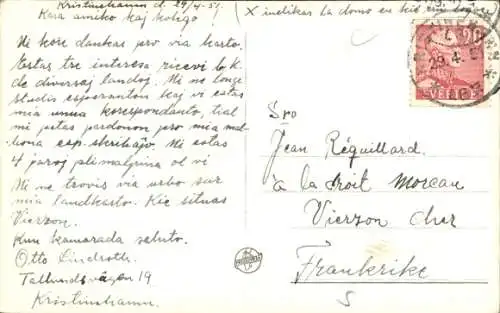 Kristinehamn d. 29/4-51. X indikas la domo en kie mi loĝas
Kara amiko kaj kolego
Mi kore dankas pro via karto.
Estas tre interesa ricevi b.k.
de diversaj landoj. Mi ne longe
studis esperanton kaj vi estas
mia unua korespondanto, tial
mi petas pardonon pro mia mal-
bona esp. skribaĵo. Mi estas
4 jaroj pli maljuna ol vi
Mi ne trovis via urbo sur
mia landkarto. Kie situas
Vierzon.
Kun kamarada saluto.
Otto Lindroth.
Tallundsvägen 19
Kristinehamn.
29.4.51
90
SVERIGE
Sro
Jean Réquillard.
à la droit Moreau
Vierzon Cher
Frankrike
S